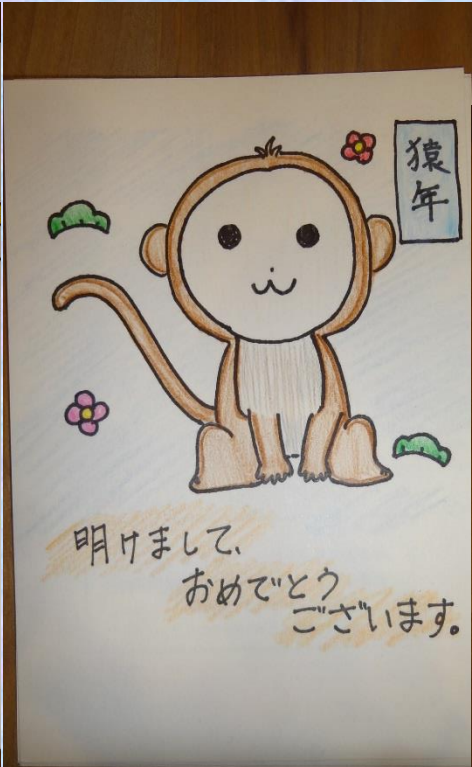 猿年
明けまして、
おめでとう
ございます。